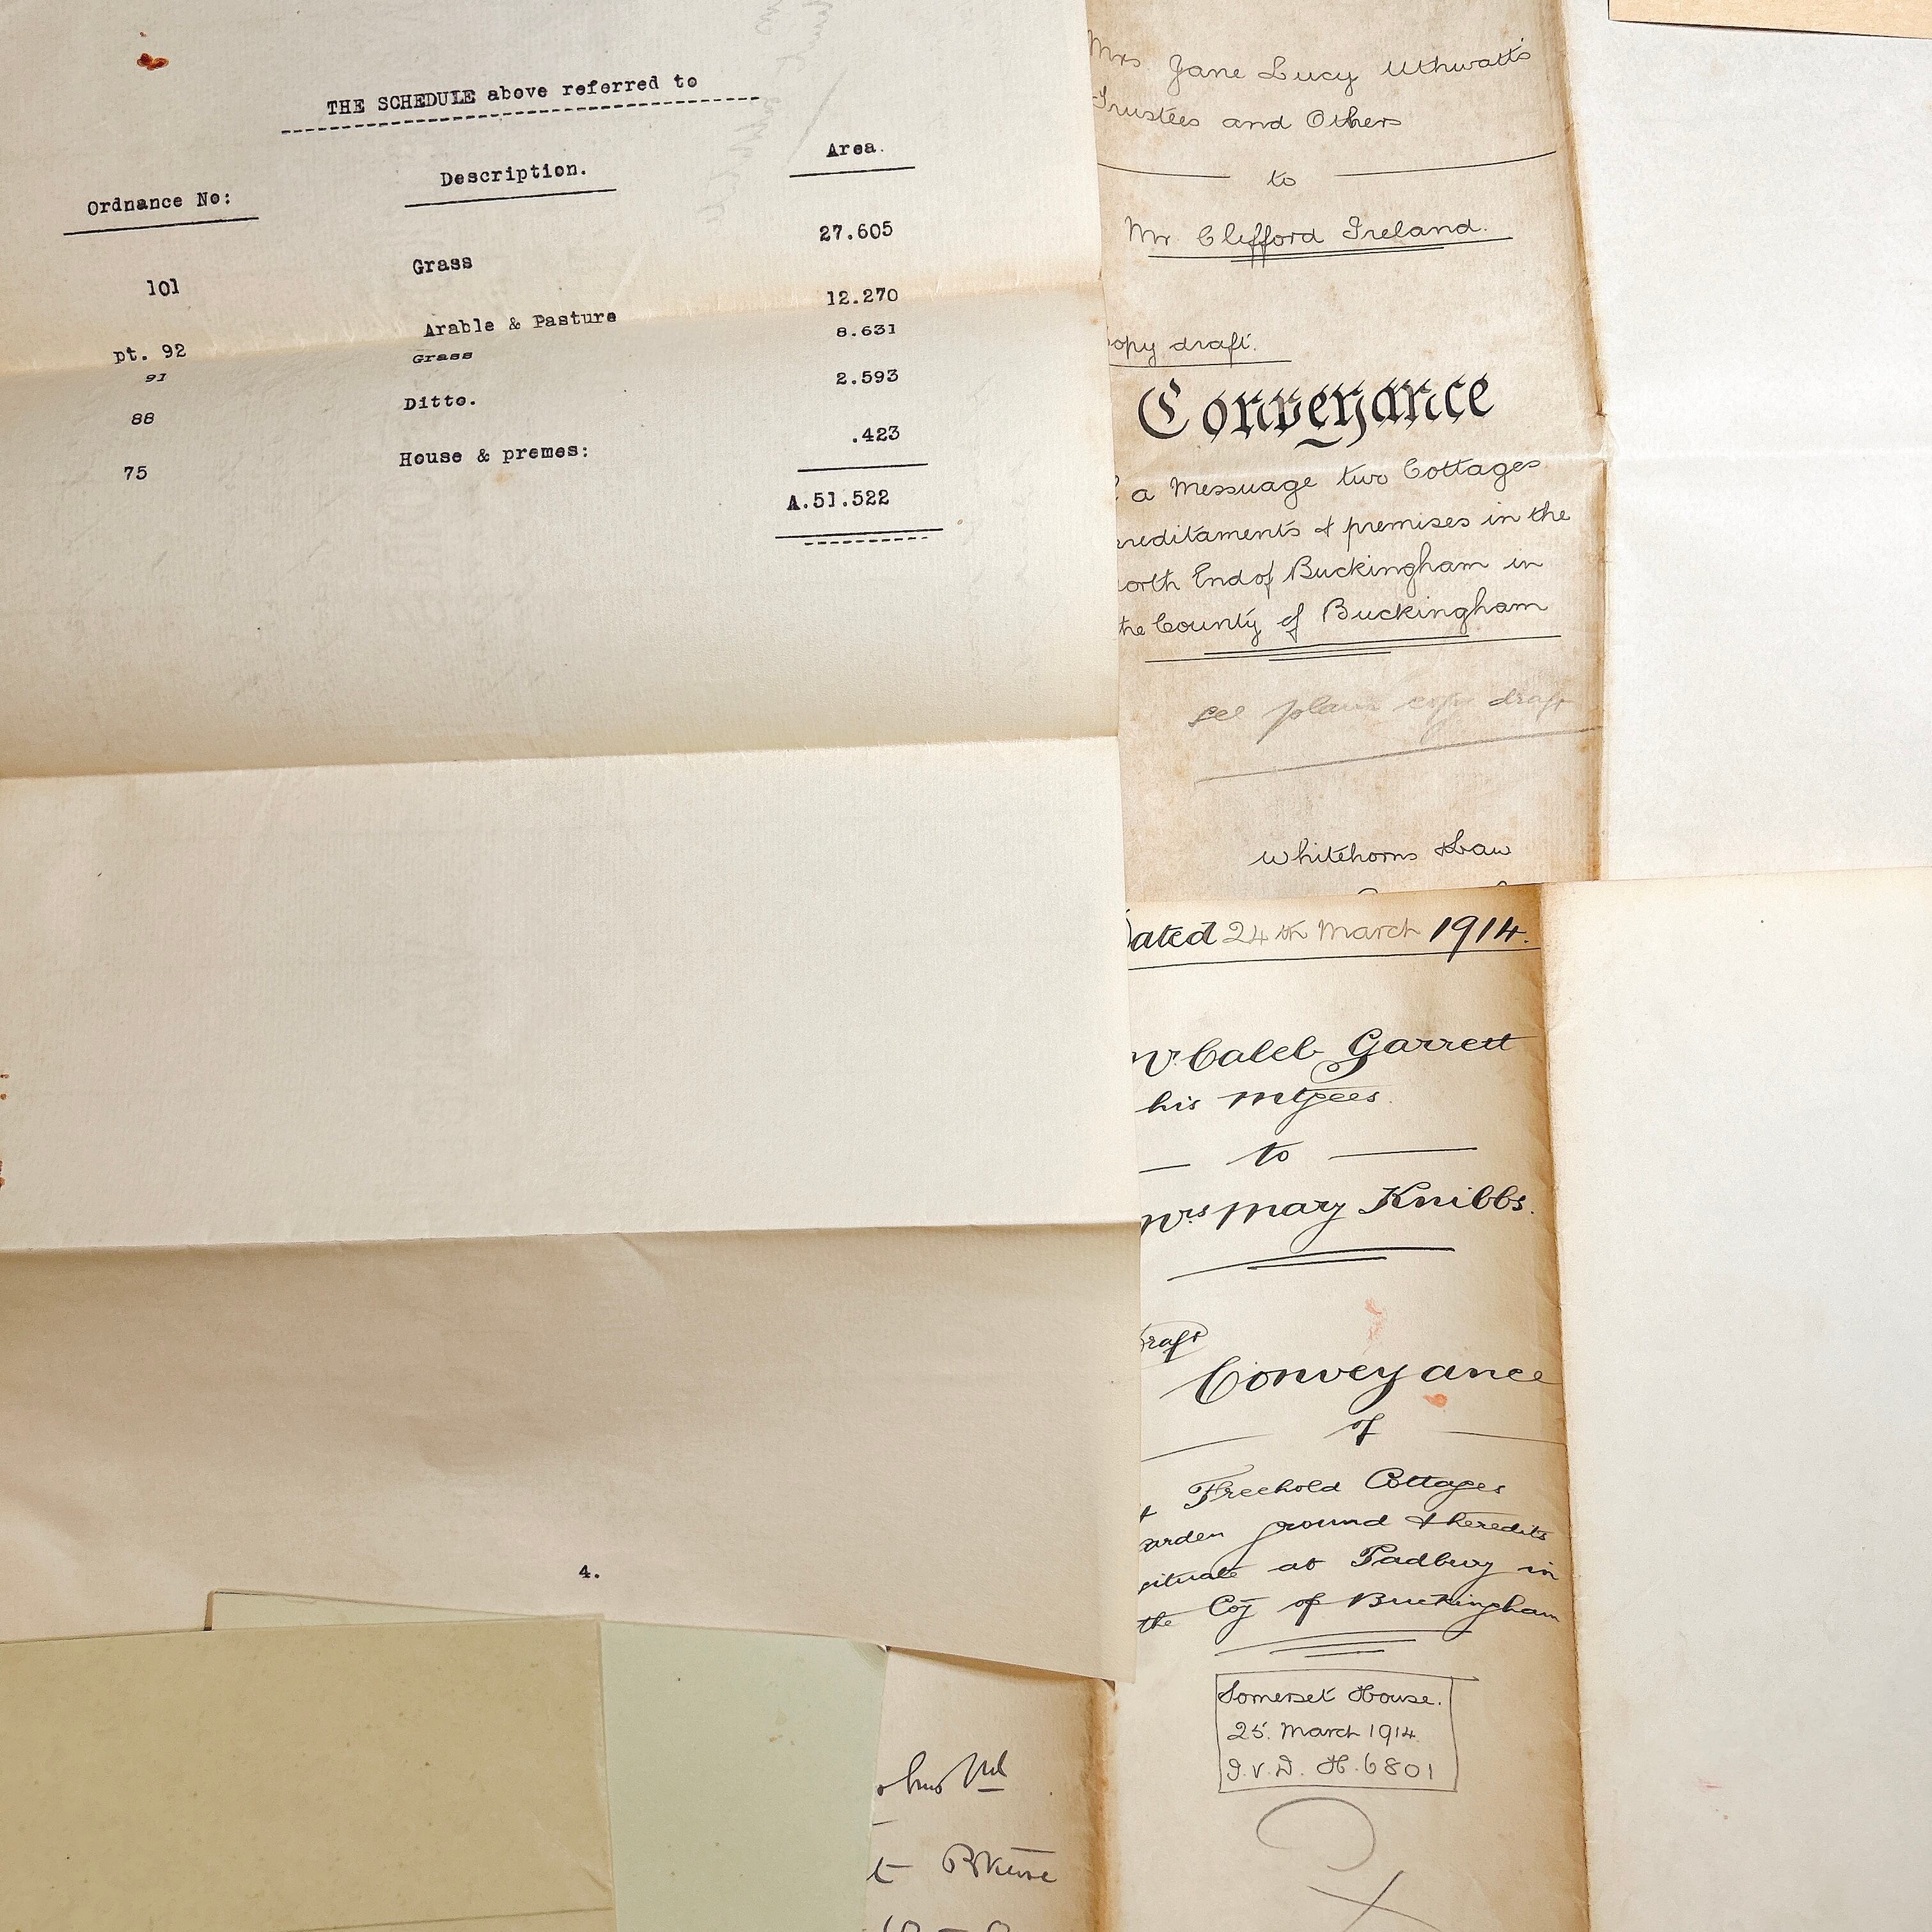 THE SCHEDULE above referred to
Ordnance No: Description. Area.
101 Grass 27.605
pt. 92 Arable & Pasture 12.270
91 Grass 8.631
88 Ditto. 2.593
75 House & premes: .423
A.51.522
4.
Mrs. Jane Lucy Uthwatt's
Trustees and Others
to
Mr. Clifford Ireland.
opy draft.
Conveyance
a Messuage two Cottages
reditaments & premises in the
orth End of Buckingham in
the County of Buckingham
see plain copy draft
Whitehorns & Law
Dated 24th March 1914.
Mr Caleb Garrett
his mtgees.
to
Mrs Mary Knibbs.
raft
Conveyance
of
Freehold Cottages
arden ground & heredits
situate at Padbury in
the Coy of Buckingham
Somerset House.
25. March 1914
I.V.D. H.6801